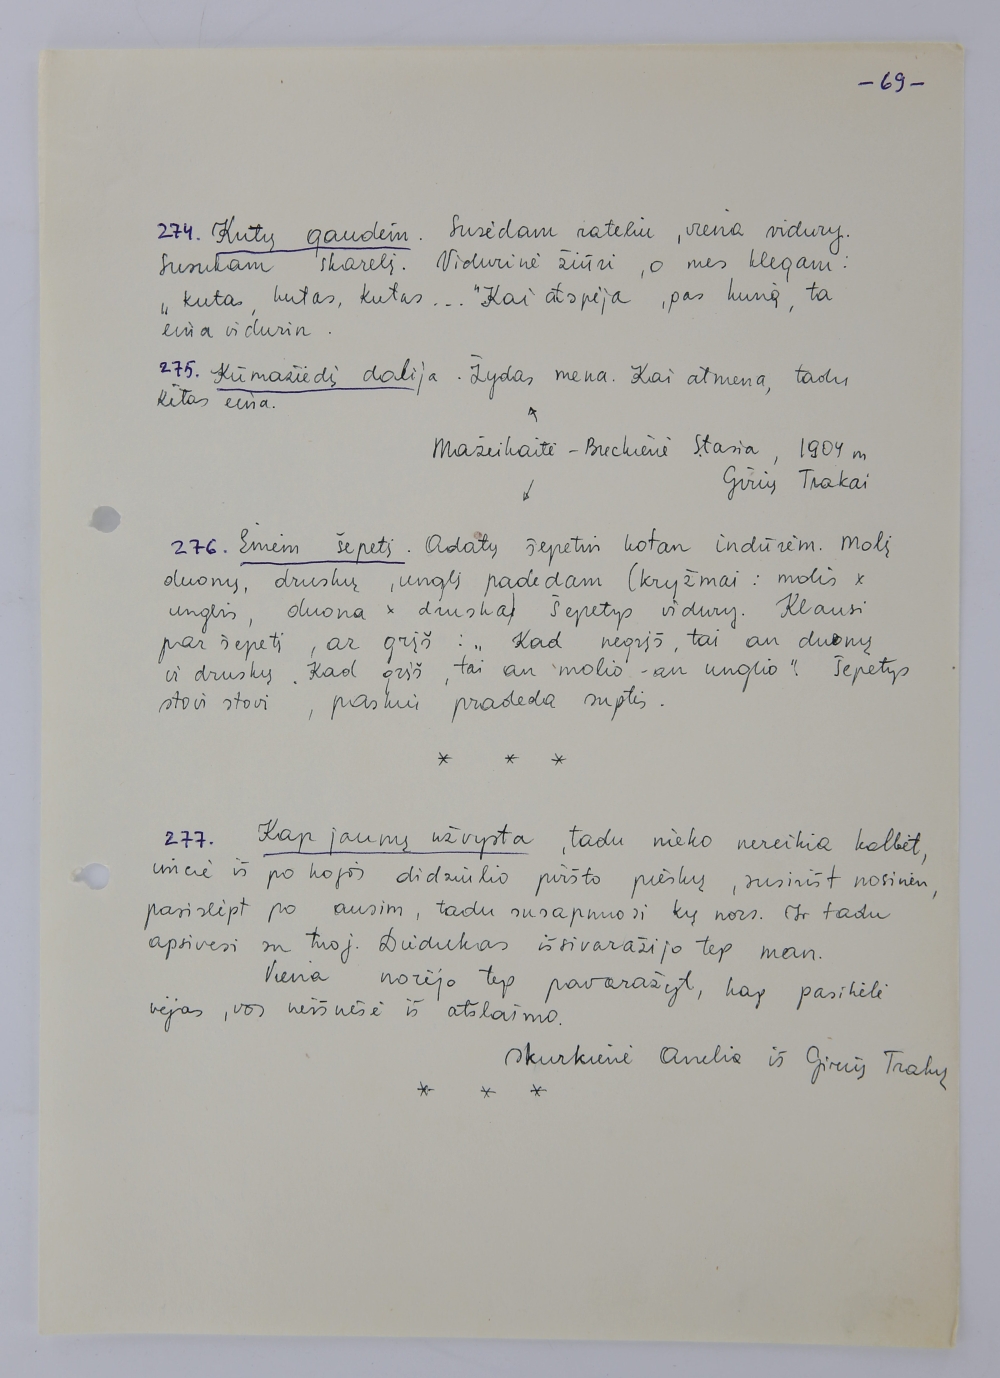 -69-
274. Kutų gaudėm. Susėdam rateliu, viena vidury.
Susukam skarelį. Vidurinė žiūri, o mes klegam:
„kutas, kutas, kutas..." Kai atspėja, pas kuną, ta
eina vidurin.
275. Kūmažiedį dalija. Žydas mena. Kai atmena, tadu
kitas eina.
Mažeikaitė-Breckienė Stasia, 1904 m
Girių Trakai
276. Ėmėm šepetį. Adatų šepetin kotan indūrėm. Molį
duonų, druskų, unglį padedam (kryžmai: molis x
unglis, duona x druska) Šepetys vidury. Klausi
par šepetį, ar grįš: „Kad negrįš, tai an duonų
ir druskų. Kad grįš, tai an molio - an unglio". Šepetys
stovi stovi, paskui pradeda suptis.
* * *
277. Kap jaunų užvysta, tadu nieko nereikia kalbėt,
imcie iš po kojos didžiulio piršto pieskų, susirišt nosinėn,
pasislėpt po ausim, tadu susapnuosi kų nors. Ir tadu
apsivesi su tuoj. Dėdukas išsivaražijo tep man.
Viena norėjo tep pavaražyt, kap pasikėlė
vėjas, vos neišnešė iš atšlaimo.
Skurkienė Anelia iš Girių Trakų
* * *